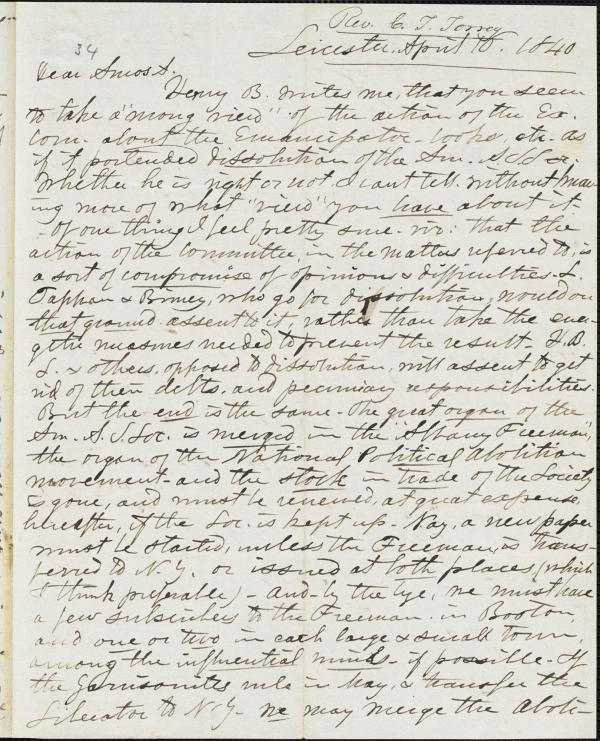 Rev. C. T. Torrey
34
Leicester, April 10. 1840
Dear Amos A.
Henry B. writes me, that you seem
to take a "mong view" of the action of the Ex.
Com. about the Emancipator - looks, etc. as
if it portended dissolution of the Am. A. S. Soc.
Whether he is right or not I can't tell, without know-
ing more of what "view" you have about it
- Of one thing I feel pretty sure - viz: that the
action of the Committee, in the matter referred to, is
a sort of compromise of opinions & difficulties - L.
Tappan & Birney, who go for dissolution, would on
that ground assent to it, rather than take the ener-
getic measures needed to prevent the result. H. B.
S. & others, opposed to dissolution, will assent to get
rid of their debts, and pecuniary responsibilities.
But the end is the same - The great organ of the
Am. A. S. Soc. is merged in the "Albany Freeman",
the organ of the National Political Abolition
movement - and the stock in trade of the Society
is gone, and must be renewed, at great expense,
hereafter, if the Soc. is kept up - Nay, a new paper
must be started, unless the Freeman, is trans-
ferred to N. Y. or issued at both places, (which
I think preferable) - and - by the bye, we must have
a few subscribers to the Freeman, in Boston,
and one or two in each large & small town,
among the influential minds - if possible - If
the Garrisonites rule in May, & transfer the
Liberator to N. Y. - we may merge the Aboli-